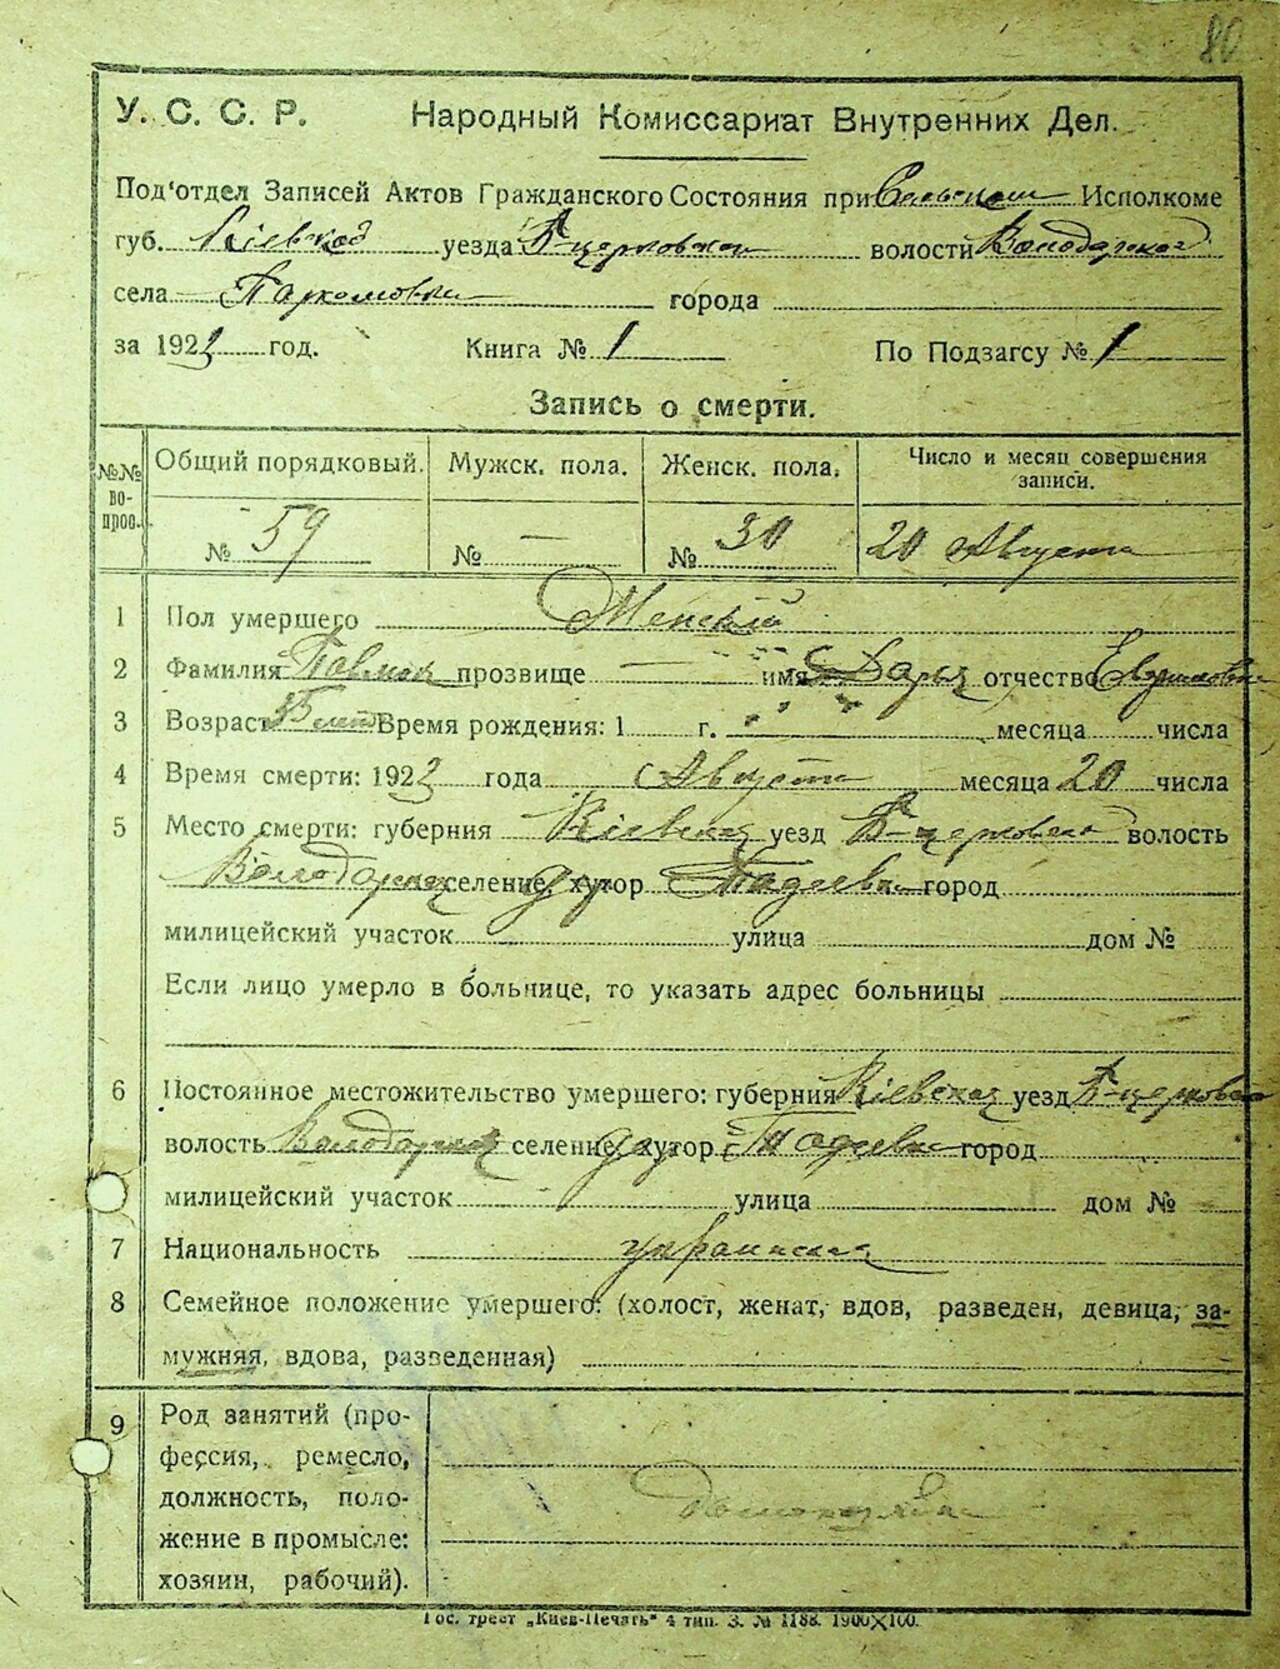 80
У. С. С. Р. Народный Комиссариат Внутренних Дел.
Под'отдел Записей Актов Гражданского Состояния при Сельском Исполкоме
губ. Кіевской уезда Б-церковской волости Володарской
села Пархомовки города
за 1923 год. Книга № 1 По Подзагсу № 1
Запись о смерти.
№№ во- прос. Общий порядковый. Мужск. пола. Женск. пола. Число и месяц совершения записи.
№ 59 № — № 30 20 Августа
1 Пол умершего Женский
2 Фамилия прозвище — имя Дарья отчество
3 Возраст 55 лет Время рождения: 1 г. месяца числа
4 Время смерти: 1923 года Августа месяца 20 числа
5 Место смерти: губерния Кіевская уезд Б-церковск волость
Володарская селение, хутор Тадеевка город
милицейский участок улица дом №
Если лицо умерло в больнице, то указать адрес больницы
6 Постоянное местожительство умершего: губерния Кіевская уезд Б-церковск
волость Володарская селение, хутор Тадеевка город
милицейский участок улица дом №
7 Национальность украинская
8 Семейное положение умершего: (холост, женат, вдов, разведен, девица, за-
мужняя, вдова, разведенная)
9 Род занятий (про-
фессия, ремесло,
должность, поло-
жение в промысле:
хозяин, рабочий).
Домохозяйка
Гос. трест „Киев-Печать" 4 тип. З. № 1188. 1900X100.